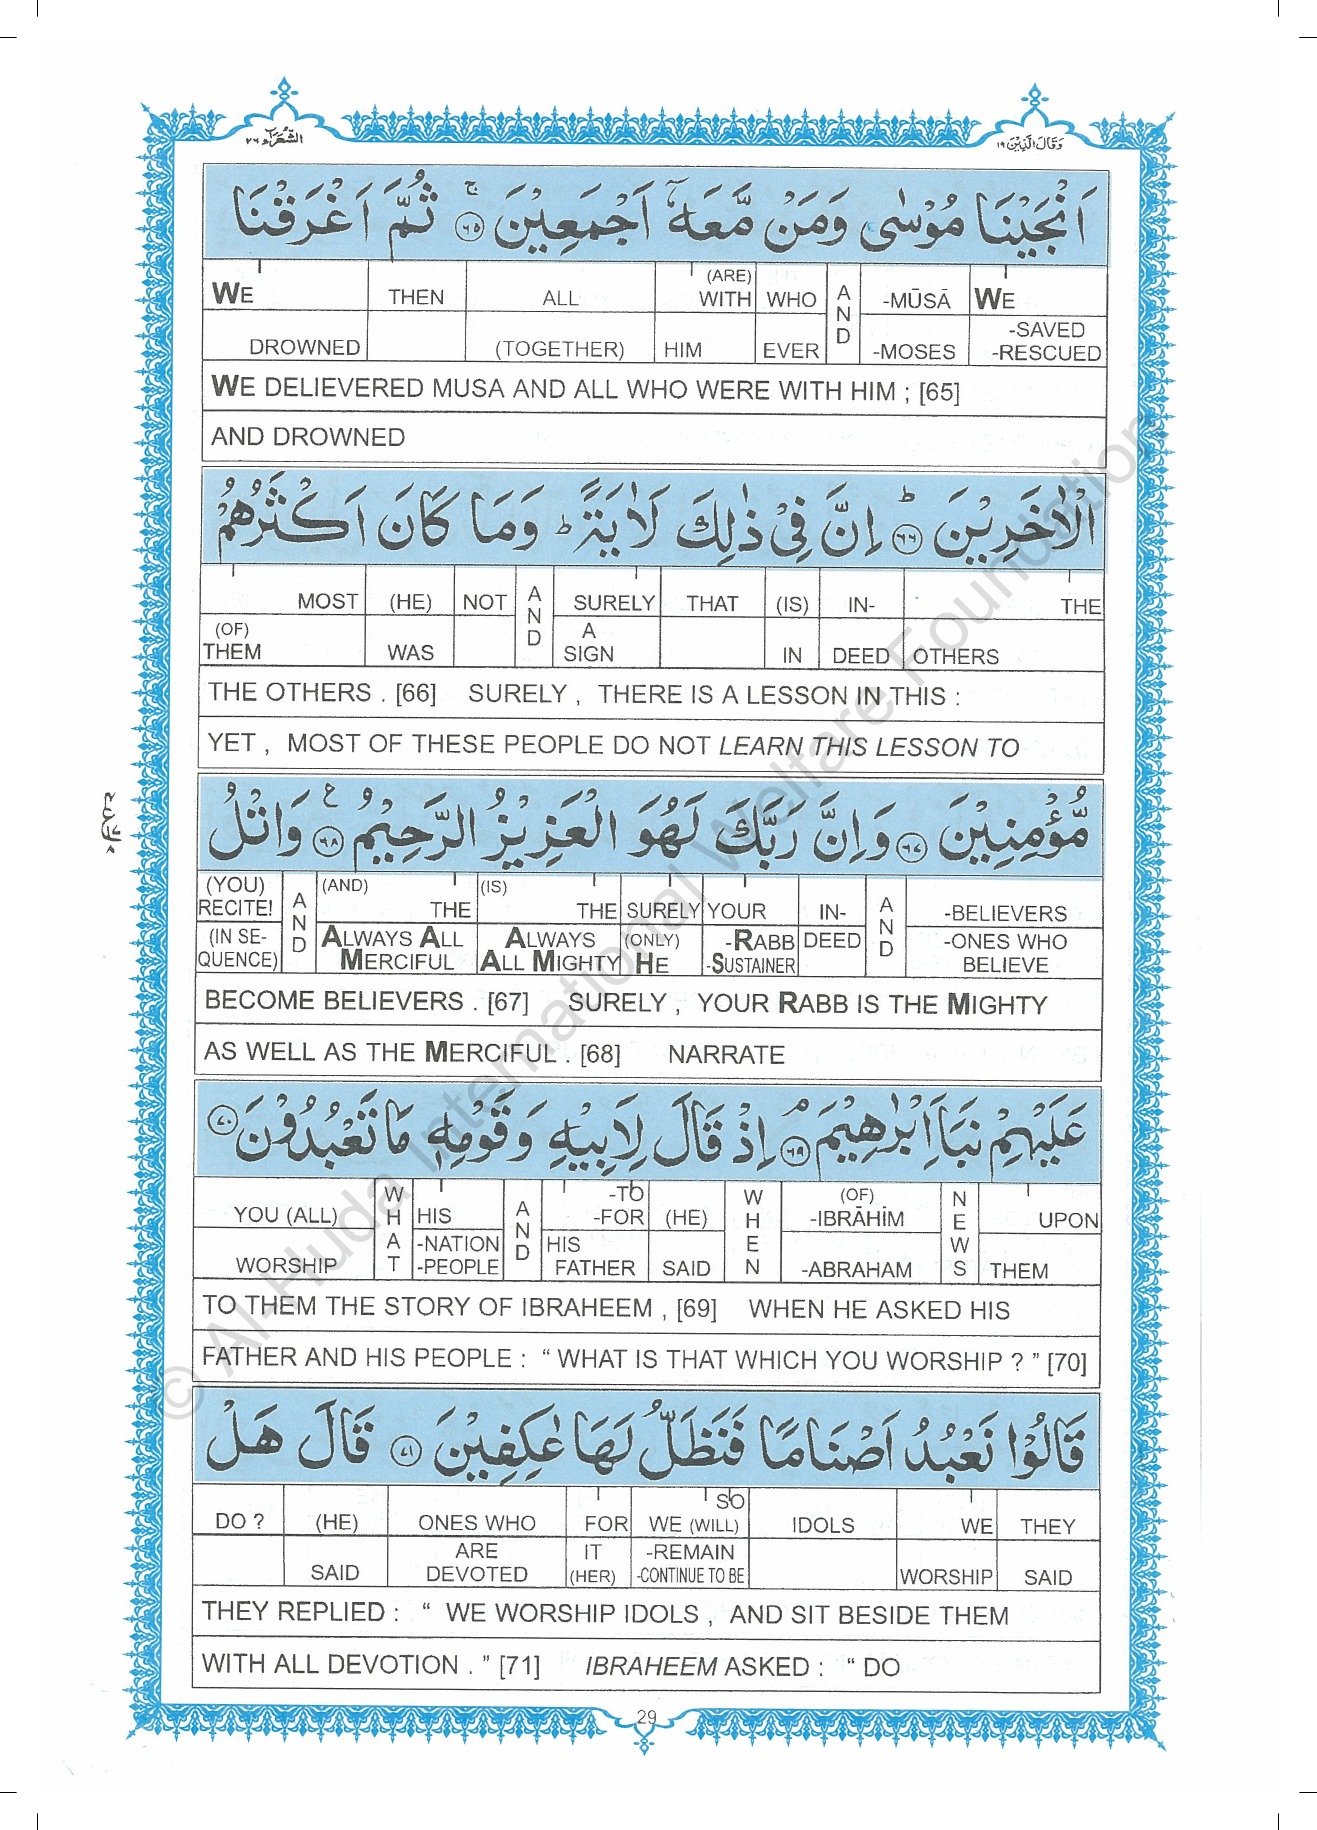 وَقَالَ الَّذِيْنَ ١٩
الشُّعَرَآء ٢٦
اَنْجَيْنَا مُوْسٰى وَمَنْ مَّعَهٗٓ اَجْمَعِيْنَ ۚ ٦٥ ثُمَّ اَغْرَقْنَا
WE THEN ALL (ARE) WITH WHO AND -MŪSĀ WE
DROWNED (TOGETHER) HIM EVER -MOSES -SAVED -RESCUED
WE DELIEVERED MUSA AND ALL WHO WERE WITH HIM ; [65]
AND DROWNED
الْاٰخَرِيْنَ ؕ ٦٦ اِنَّ فِيْ ذٰلِكَ لَاٰيَةً ؕ وَمَا كَانَ اَكْثَرُهُمْ
MOST (HE) NOT AND SURELY THAT (IS) IN- THE
(OF) THEM WAS A SIGN IN DEED OTHERS
THE OTHERS . [66] SURELY , THERE IS A LESSON IN THIS :
YET , MOST OF THESE PEOPLE DO NOT LEARN THIS LESSON TO
مُّؤْمِنِيْنَ ٦٧ وَاِنَّ رَبَّكَ لَهُوَ الْعَزِيْزُ الرَّحِيْمُ ع ٦٨ وَاتْلُ
(YOU) RECITE! AND (AND) THE (IS) THE SURELY YOUR IN- AND -BELIEVERS
(IN SE- QUENCE) ALWAYS ALL MERCIFUL ALWAYS ALL MIGHTY (ONLY) HE -RABB -SUSTAINER DEED -ONES WHO BELIEVE
BECOME BELIEVERS . [67] SURELY , YOUR RABB IS THE MIGHTY
AS WELL AS THE MERCIFUL . [68] NARRATE
عَلَيْهِمْ نَبَاَ اِبْرٰهِيْمَ ۘ ٦٩ اِذْ قَالَ لِاَبِيْهِ وَقَوْمِهٖ مَا تَعْبُدُوْنَ ٧٠
YOU (ALL) WHAT HIS AND -TO -FOR (HE) WHEN (OF) -IBRĀHĪM NEWS UPON
WORSHIP -NATION -PEOPLE HIS FATHER SAID -ABRAHAM THEM
TO THEM THE STORY OF IBRAHEEM , [69] WHEN HE ASKED HIS
FATHER AND HIS PEOPLE : “ WHAT IS THAT WHICH YOU WORSHIP ? ” [70]
قَالُوْا نَعْبُدُ اَصْنَامًا فَنَظَلُّ لَهَا عٰكِفِيْنَ ٧١ قَالَ هَلْ
DO ? (HE) ONES WHO FOR SO WE (WILL) IDOLS WE THEY
SAID ARE DEVOTED IT (HER) -REMAIN -CONTINUE TO BE WORSHIP SAID
THEY REPLIED : “ WE WORSHIP IDOLS , AND SIT BESIDE THEM
WITH ALL DEVOTION . ” [71] IBRAHEEM ASKED : “ DO
29
© Al-Huda International Welfare Foundation